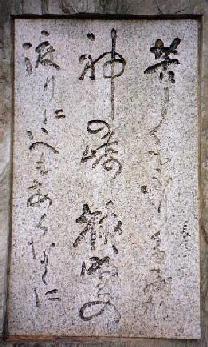 苦しくもふりくる雨か
神の崎狭野の
渡りにいへもあらなくに